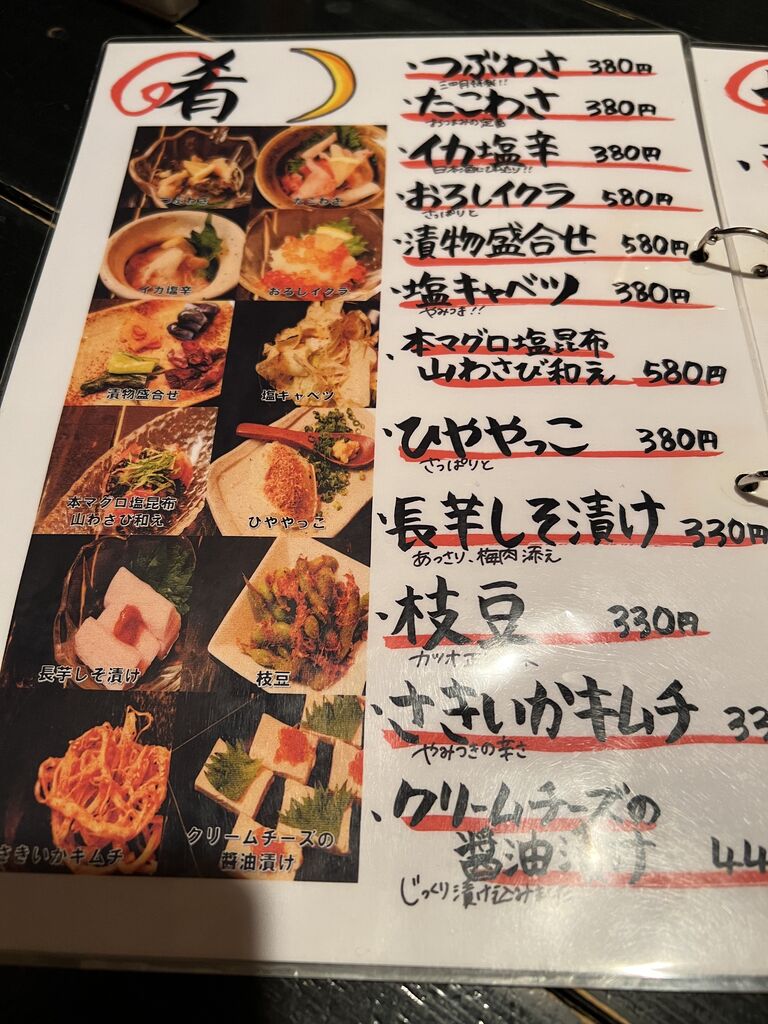 肴
つぶわさ 380円
たこわさ 380円
おつまみの定番
イカ塩辛 380円
おろしイクラ 580円
さっぱりと
漬物盛合せ 580円
塩キャベツ 380円
やみつき!!
本マグロ塩昆布
山わさび和え 580円
ひややっこ 380円
さっぱりと
長芋しそ漬け 330円
あっさり、梅肉添え
枝豆 330円
カツオ
さきいかキムチ 33
やみつきの辛さ
クリームチーズの
醤油漬け 44
じっくり漬け込み
つぶわさ
たこわさ
イカ塩辛
おろしイクラ
漬物盛合せ
塩キャベツ
本マグロ塩昆布
山わさび和え
ひややっこ
長芋しそ漬け
枝豆
さきいかキムチ
クリームチーズの
醤油漬け